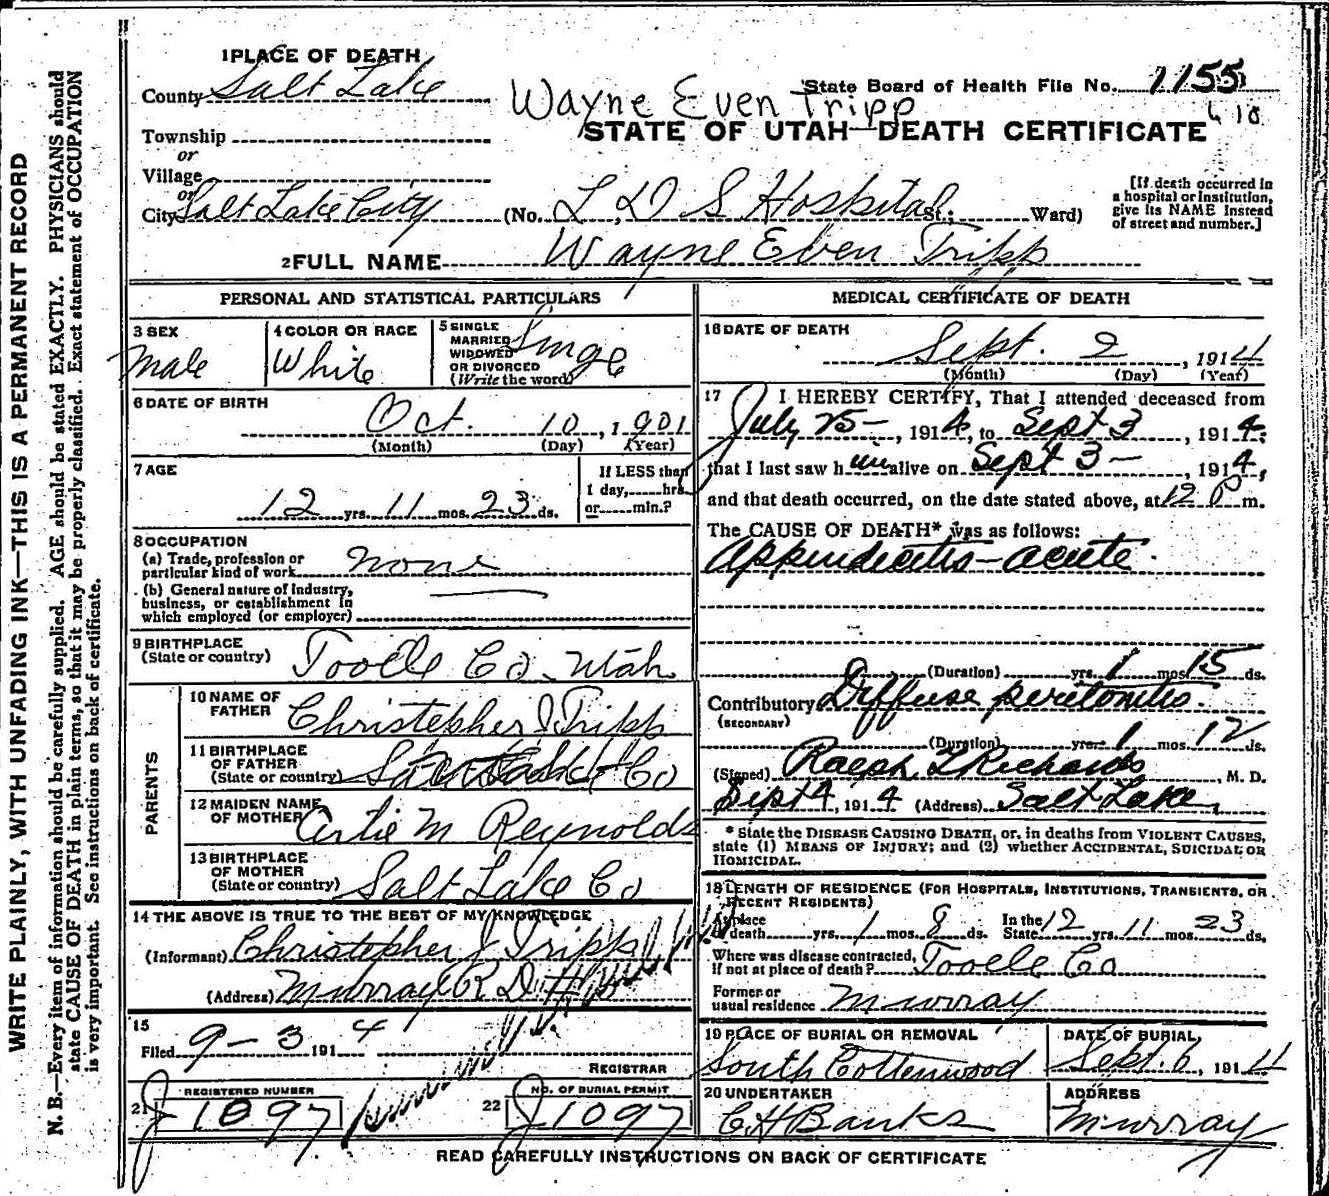 1 PLACE OF DEATH
County Salt Lake
State Board of Health File No. 1155
Wayne Even Tripp
610
STATE OF UTAH—DEATH CERTIFICATE
Township
or
Village
or
City Salt Lake City (No. L.D.S Hospital St.; Ward)
[If death occurred in a hospital or institution, give its NAME instead of street and number.]
2 FULL NAME Wayne Even Tripp
PERSONAL AND STATISTICAL PARTICULARS
3 SEX
Male
4 COLOR OR RACE
White
5 SINGLE MARRIED WIDOWED OR DIVORCED (Write the word)
Singe
6 DATE OF BIRTH
Oct. 10, 1901
(Month) (Day) (Year)
7 AGE
12 yrs. 11 mos. 23 ds.
If LESS than 1 day, hrs. or min.?
8 OCCUPATION
(a) Trade, profession or particular kind of work none
(b) General nature of industry, business, or establishment in which employed (or employer)
9 BIRTHPLACE
(State or country) Tooele Co Utah
PARENTS
10 NAME OF FATHER Christopher J Tripp
11 BIRTHPLACE OF FATHER (State or country) Co
12 MAIDEN NAME OF MOTHER Artie M Reynolds
13 BIRTHPLACE OF MOTHER (State or country) Salt Lake Co
14 THE ABOVE IS TRUE TO THE BEST OF MY KNOWLEDGE
(Informant) Christopher J Tripp
(Address) Murray R D #
15
Filed 9-3 1914
REGISTRAR
21 REGISTERED NUMBER
J 1097
22 NO. OF BURIAL PERMIT
J 1097
MEDICAL CERTIFICATE OF DEATH
16 DATE OF DEATH
Sept. 2, 1914
(Month) (Day) (Year)
17 I HEREBY CERTIFY, That I attended deceased from
July 25-, 1914, to Sept 3, 1914,
that I last saw him alive on Sept 3-, 1914,
and that death occurred, on the date stated above, at 12 P m.
The CAUSE OF DEATH* was as follows:
Appendicitis-acute.
(Duration) yrs. 1 mos. 15 ds.
Contributory Diffuse peritonitis.
(SECONDARY)
(Duration) yrs. 1 mos. 12 ds.
(Signed) Ralph T Richards, M. D.
Sept 4, 1914 (Address) Salt Lake
* State the DISEASE CAUSING DEATH, or, in deaths from VIOLENT CAUSES,
state (1) MEANS OF INJURY; and (2) whether ACCIDENTAL, SUICIDAL OR
HOMICIDAL.
18 LENGTH OF RESIDENCE (FOR HOSPITALS, INSTITUTIONS, TRANSIENTS, OR
RECENT RESIDENTS)
At place of death yrs. 1 mos. 8 ds. In the State 12 yrs. 11 mos. 23 ds.
Where was disease contracted, If not at place of death? Tooele Co
Former or usual residence Murray
19 PLACE OF BURIAL OR REMOVAL
South Cottenwood
DATE OF BURIAL
Sept. 6, 1914
20 UNDERTAKER
C H Banks
ADDRESS
Murray
READ CAREFULLY INSTRUCTIONS ON BACK OF CERTIFICATE
WRITE PLAINLY, WITH UNFADING INK—THIS IS A PERMANENT RECORD
N. B.—Every item of information should be carefully supplied. AGE should be stated EXACTLY. PHYSICIANS should
state CAUSE OF DEATH in plain terms, so that it may be properly classified. Exact statement of OCCUPATION
is very important. See instructions on back of certificate.